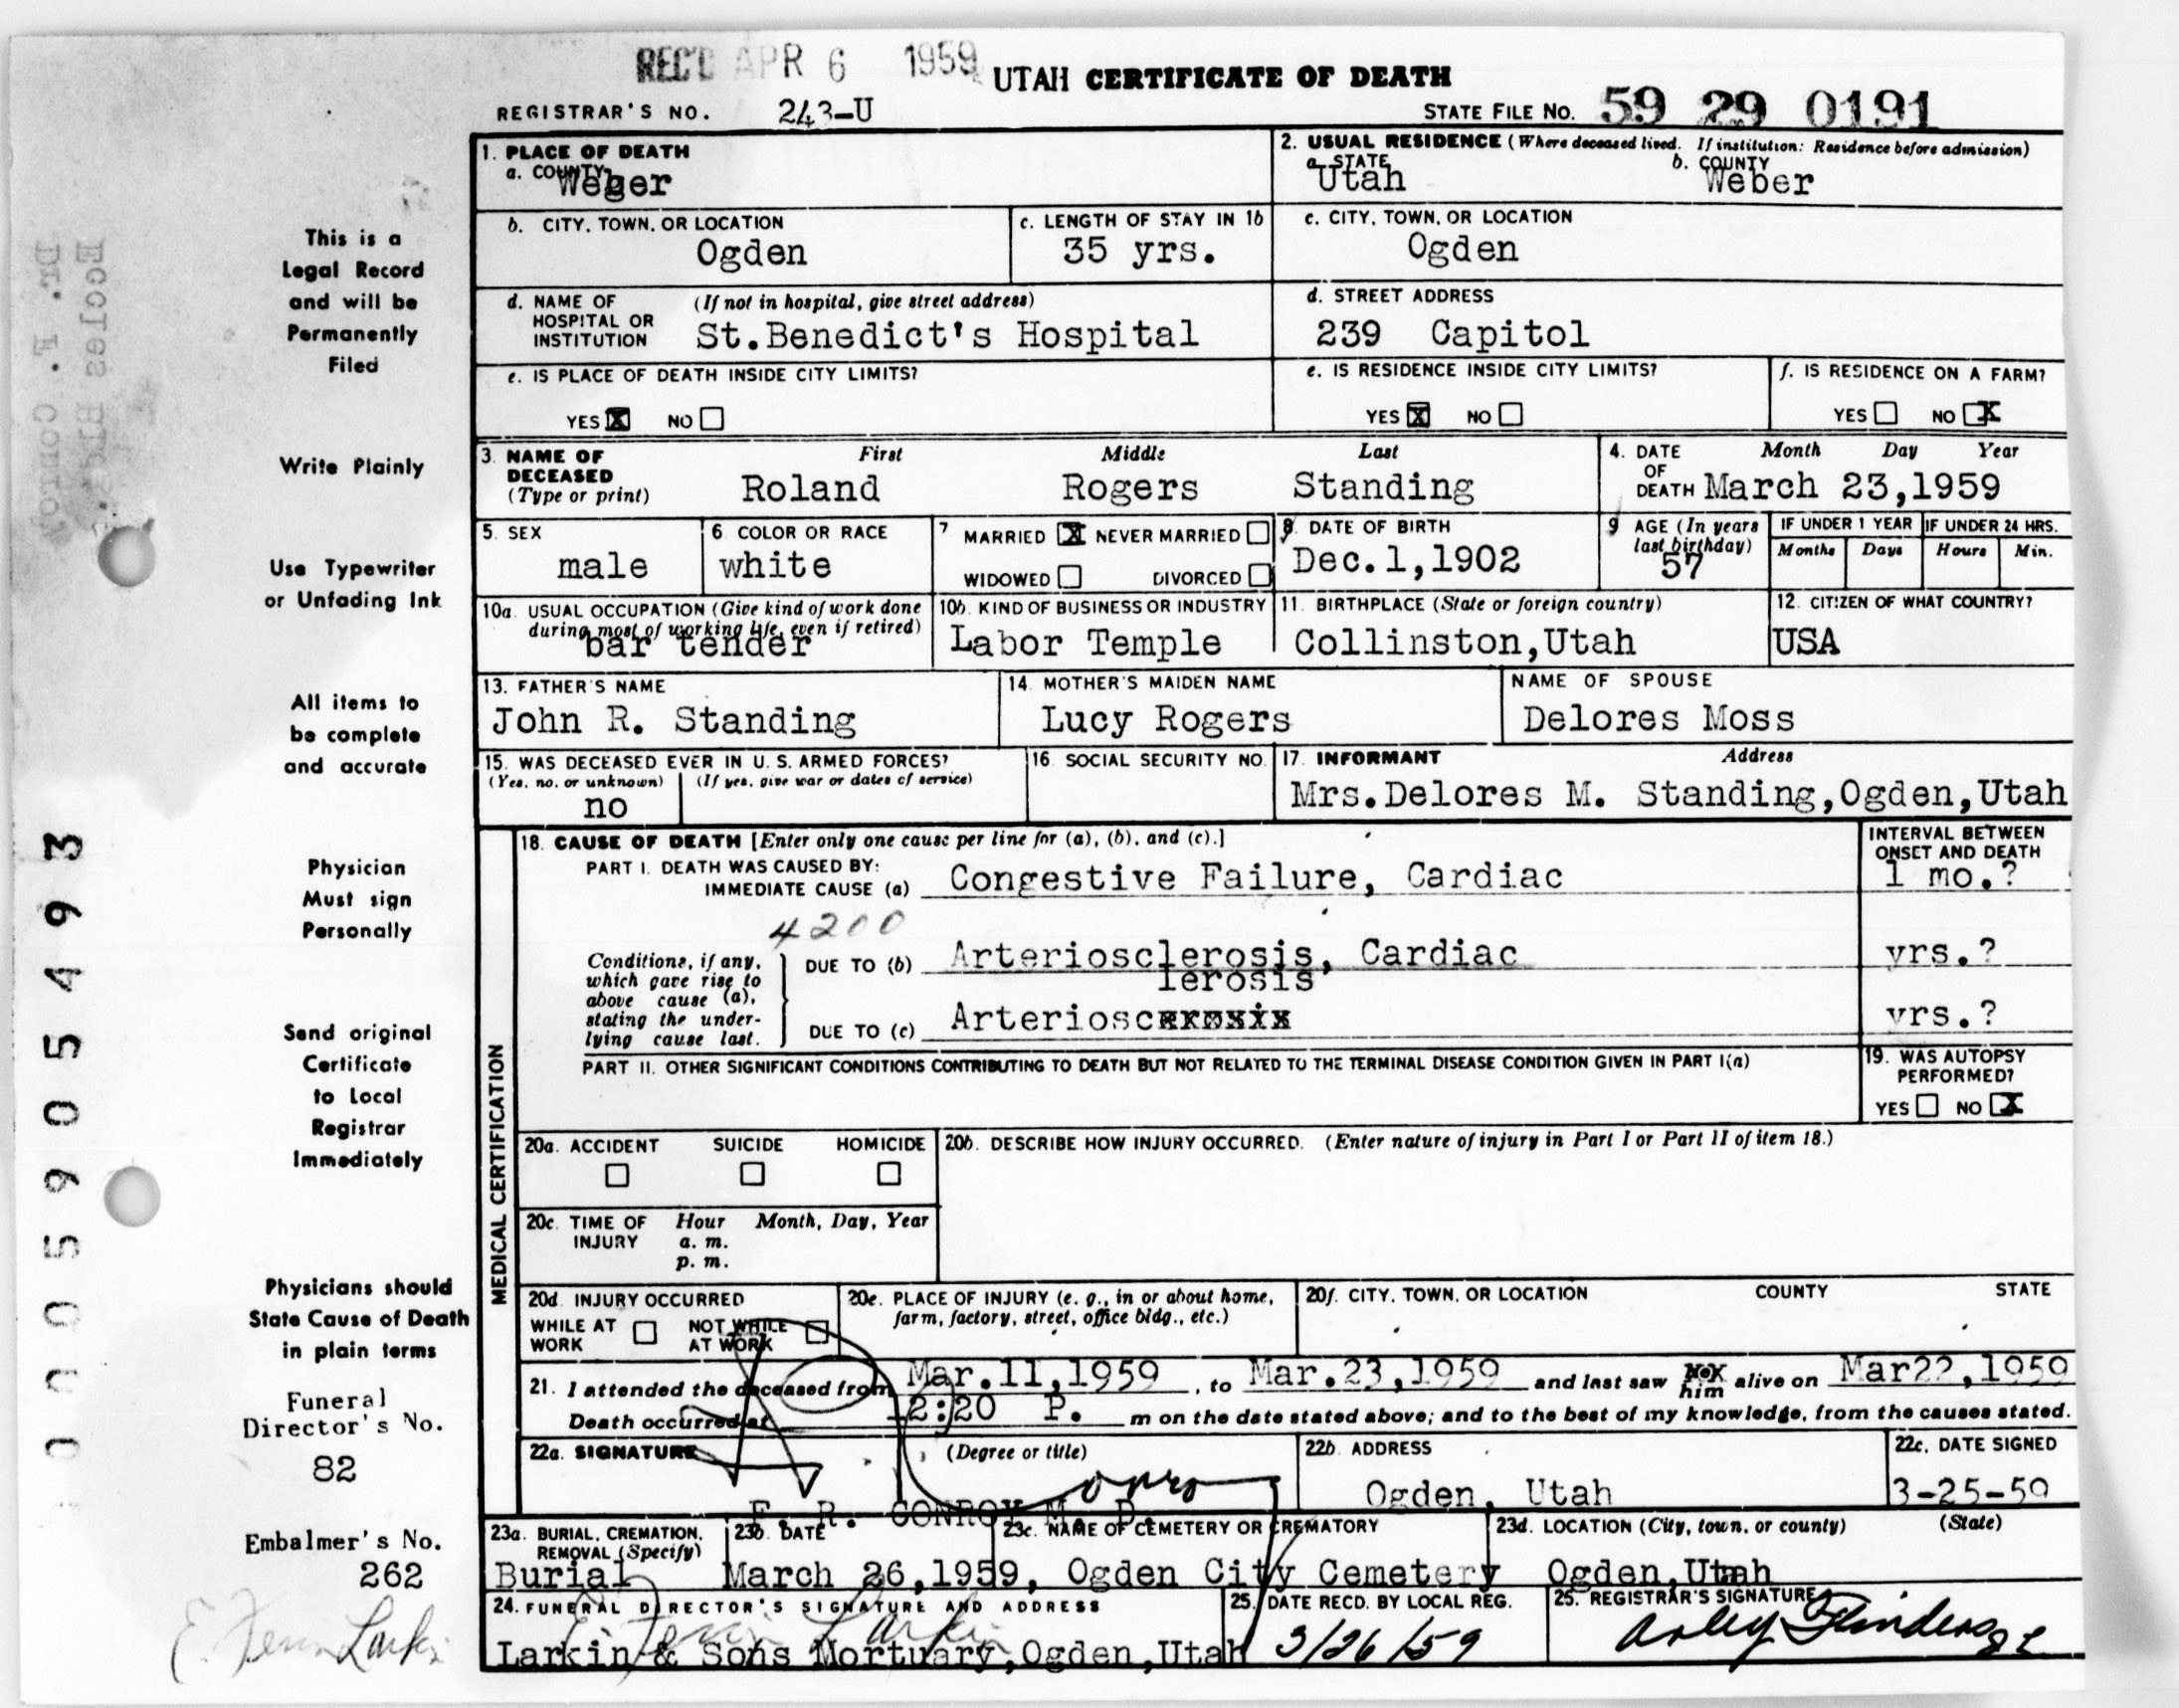 REC'D APR 6 1959
UTAH CERTIFICATE OF DEATH
REGISTRAR'S NO. 243-U
STATE FILE NO. 59 29 0191
1. PLACE OF DEATH
a. COUNTY
Weber
2. USUAL RESIDENCE (Where deceased lived. If institution: Residence before admission)
a. STATE b. COUNTY
Utah Weber
b. CITY, TOWN, OR LOCATION
Ogden
c. LENGTH OF STAY IN 1b
35 yrs.
c. CITY, TOWN, OR LOCATION
Ogden
d. NAME OF (If not in hospital, give street address)
HOSPITAL OR
INSTITUTION St.Benedict's Hospital
d. STREET ADDRESS
239 Capitol
e. IS PLACE OF DEATH INSIDE CITY LIMITS?
YES X NO
e. IS RESIDENCE INSIDE CITY LIMITS?
YES X NO
f. IS RESIDENCE ON A FARM?
YES NO X
3. NAME OF First Middle Last
DECEASED
(Type or print) Roland Rogers Standing
4. DATE Month Day Year
OF
DEATH March 23,1959
5. SEX
male
6. COLOR OR RACE
white
7 MARRIED X NEVER MARRIED
WIDOWED DIVORCED
8. DATE OF BIRTH
Dec.1,1902
9 AGE (In years
last birthday)
57
IF UNDER 1 YEAR IF UNDER 24 HRS.
Months Days Hours Min.
10a. USUAL OCCUPATION (Give kind of work done
during most of working life, even if retired)
bar tender
10b. KIND OF BUSINESS OR INDUSTRY
Labor Temple
11. BIRTHPLACE (State or foreign country)
Collinston,Utah
12. CITIZEN OF WHAT COUNTRY?
USA
13. FATHER'S NAME
John R. Standing
14. MOTHER'S MAIDEN NAME
Lucy Rogers
NAME OF SPOUSE
Delores Moss
15. WAS DECEASED EVER IN U.S. ARMED FORCES?
(Yes, no, or unknown) (If yes, give war or dates of service)
no
16. SOCIAL SECURITY NO.
17. INFORMANT Address
Mrs.Delores M. Standing,Ogden,Utah
MEDICAL CERTIFICATION
18. CAUSE OF DEATH [Enter only one cause per line for (a), (b), and (c).]
INTERVAL BETWEEN
ONSET AND DEATH
PART I. DEATH WAS CAUSED BY:
IMMEDIATE CAUSE (a) Congestive Failure, Cardiac 1 mo.?
4200
Conditions, if any,
which gave rise to
above cause (a),
stating the under-
lying cause last.
DUE TO (b) Arteriosclerosis, Cardiac yrs.?
lerosis
DUE TO (c) Arterioscxrosix yrs.?
PART II. OTHER SIGNIFICANT CONDITIONS CONTRIBUTING TO DEATH BUT NOT RELATED TO THE TERMINAL DISEASE CONDITION GIVEN IN PART I(a)
19. WAS AUTOPSY
PERFORMED?
YES NO X
20a. ACCIDENT SUICIDE HOMICIDE
20b. DESCRIBE HOW INJURY OCCURRED. (Enter nature of injury in Part I or Part II of item 18.)
20c. TIME OF Hour Month, Day, Year
INJURY a. m.
p. m.
20d. INJURY OCCURRED
WHILE AT NOT WHILE
WORK AT WORK
20e. PLACE OF INJURY (e. g., in or about home,
farm, factory, street, office bldg., etc.)
20f. CITY, TOWN, OR LOCATION COUNTY STATE
21. I attended the deceased from Mar.11,1959, to Mar.23,1959 and last saw him alive on Mar22,1959
Death occurred at 2:20 P. m on the date stated above; and to the best of my knowledge, from the causes stated.
22a. SIGNATURE (Degree or title)
F. R. CONROY M. D.
22b. ADDRESS
Ogden, Utah
22c. DATE SIGNED
3-25-59
23a. BURIAL, CREMATION,
REMOVAL (Specify)
Burial
23b. DATE
March 26,1959,
23c. NAME OF CEMETERY OR CREMATORY
Ogden City Cemetery
23d. LOCATION (City, town, or county) (State)
Ogden,Utah
24. FUNERAL DIRECTOR'S SIGNATURE AND ADDRESS
Larkin & Sons Mortuary,Ogden,Utah
25. DATE RECD. BY LOCAL REG.
3/26/59
25. REGISTRAR'S SIGNATURE
This is a
Legal Record
and will be
Permanently
Filed
Write Plainly
Use Typewriter
or Unfading Ink
All items to
be complete
and accurate
Physician
Must sign
Personally
Send original
Certificate
to Local
Registrar
Immediately
Physicians should
State Cause of Death
in plain terms
Funeral
Director's No.
82
Embalmer's No.
262
E. Fenn Larkin
Dr. F. Conroy
Eccles Bldg.